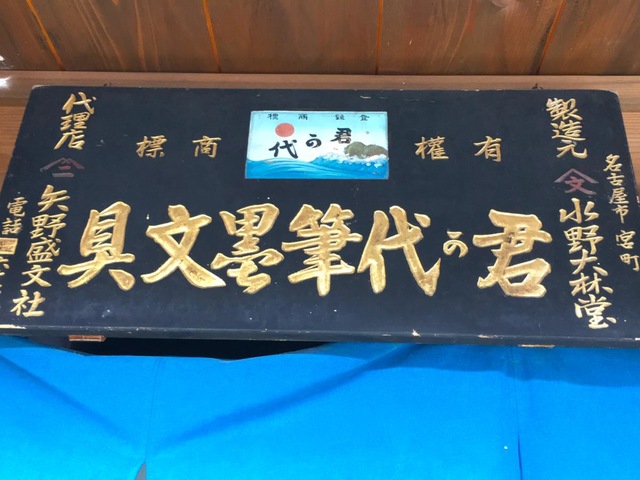 製造元
文
名古屋市宮町
水野大林堂
有權
登錄商標
君か代
商標
君か代筆墨文具
代理店
矢野盛文社
電話